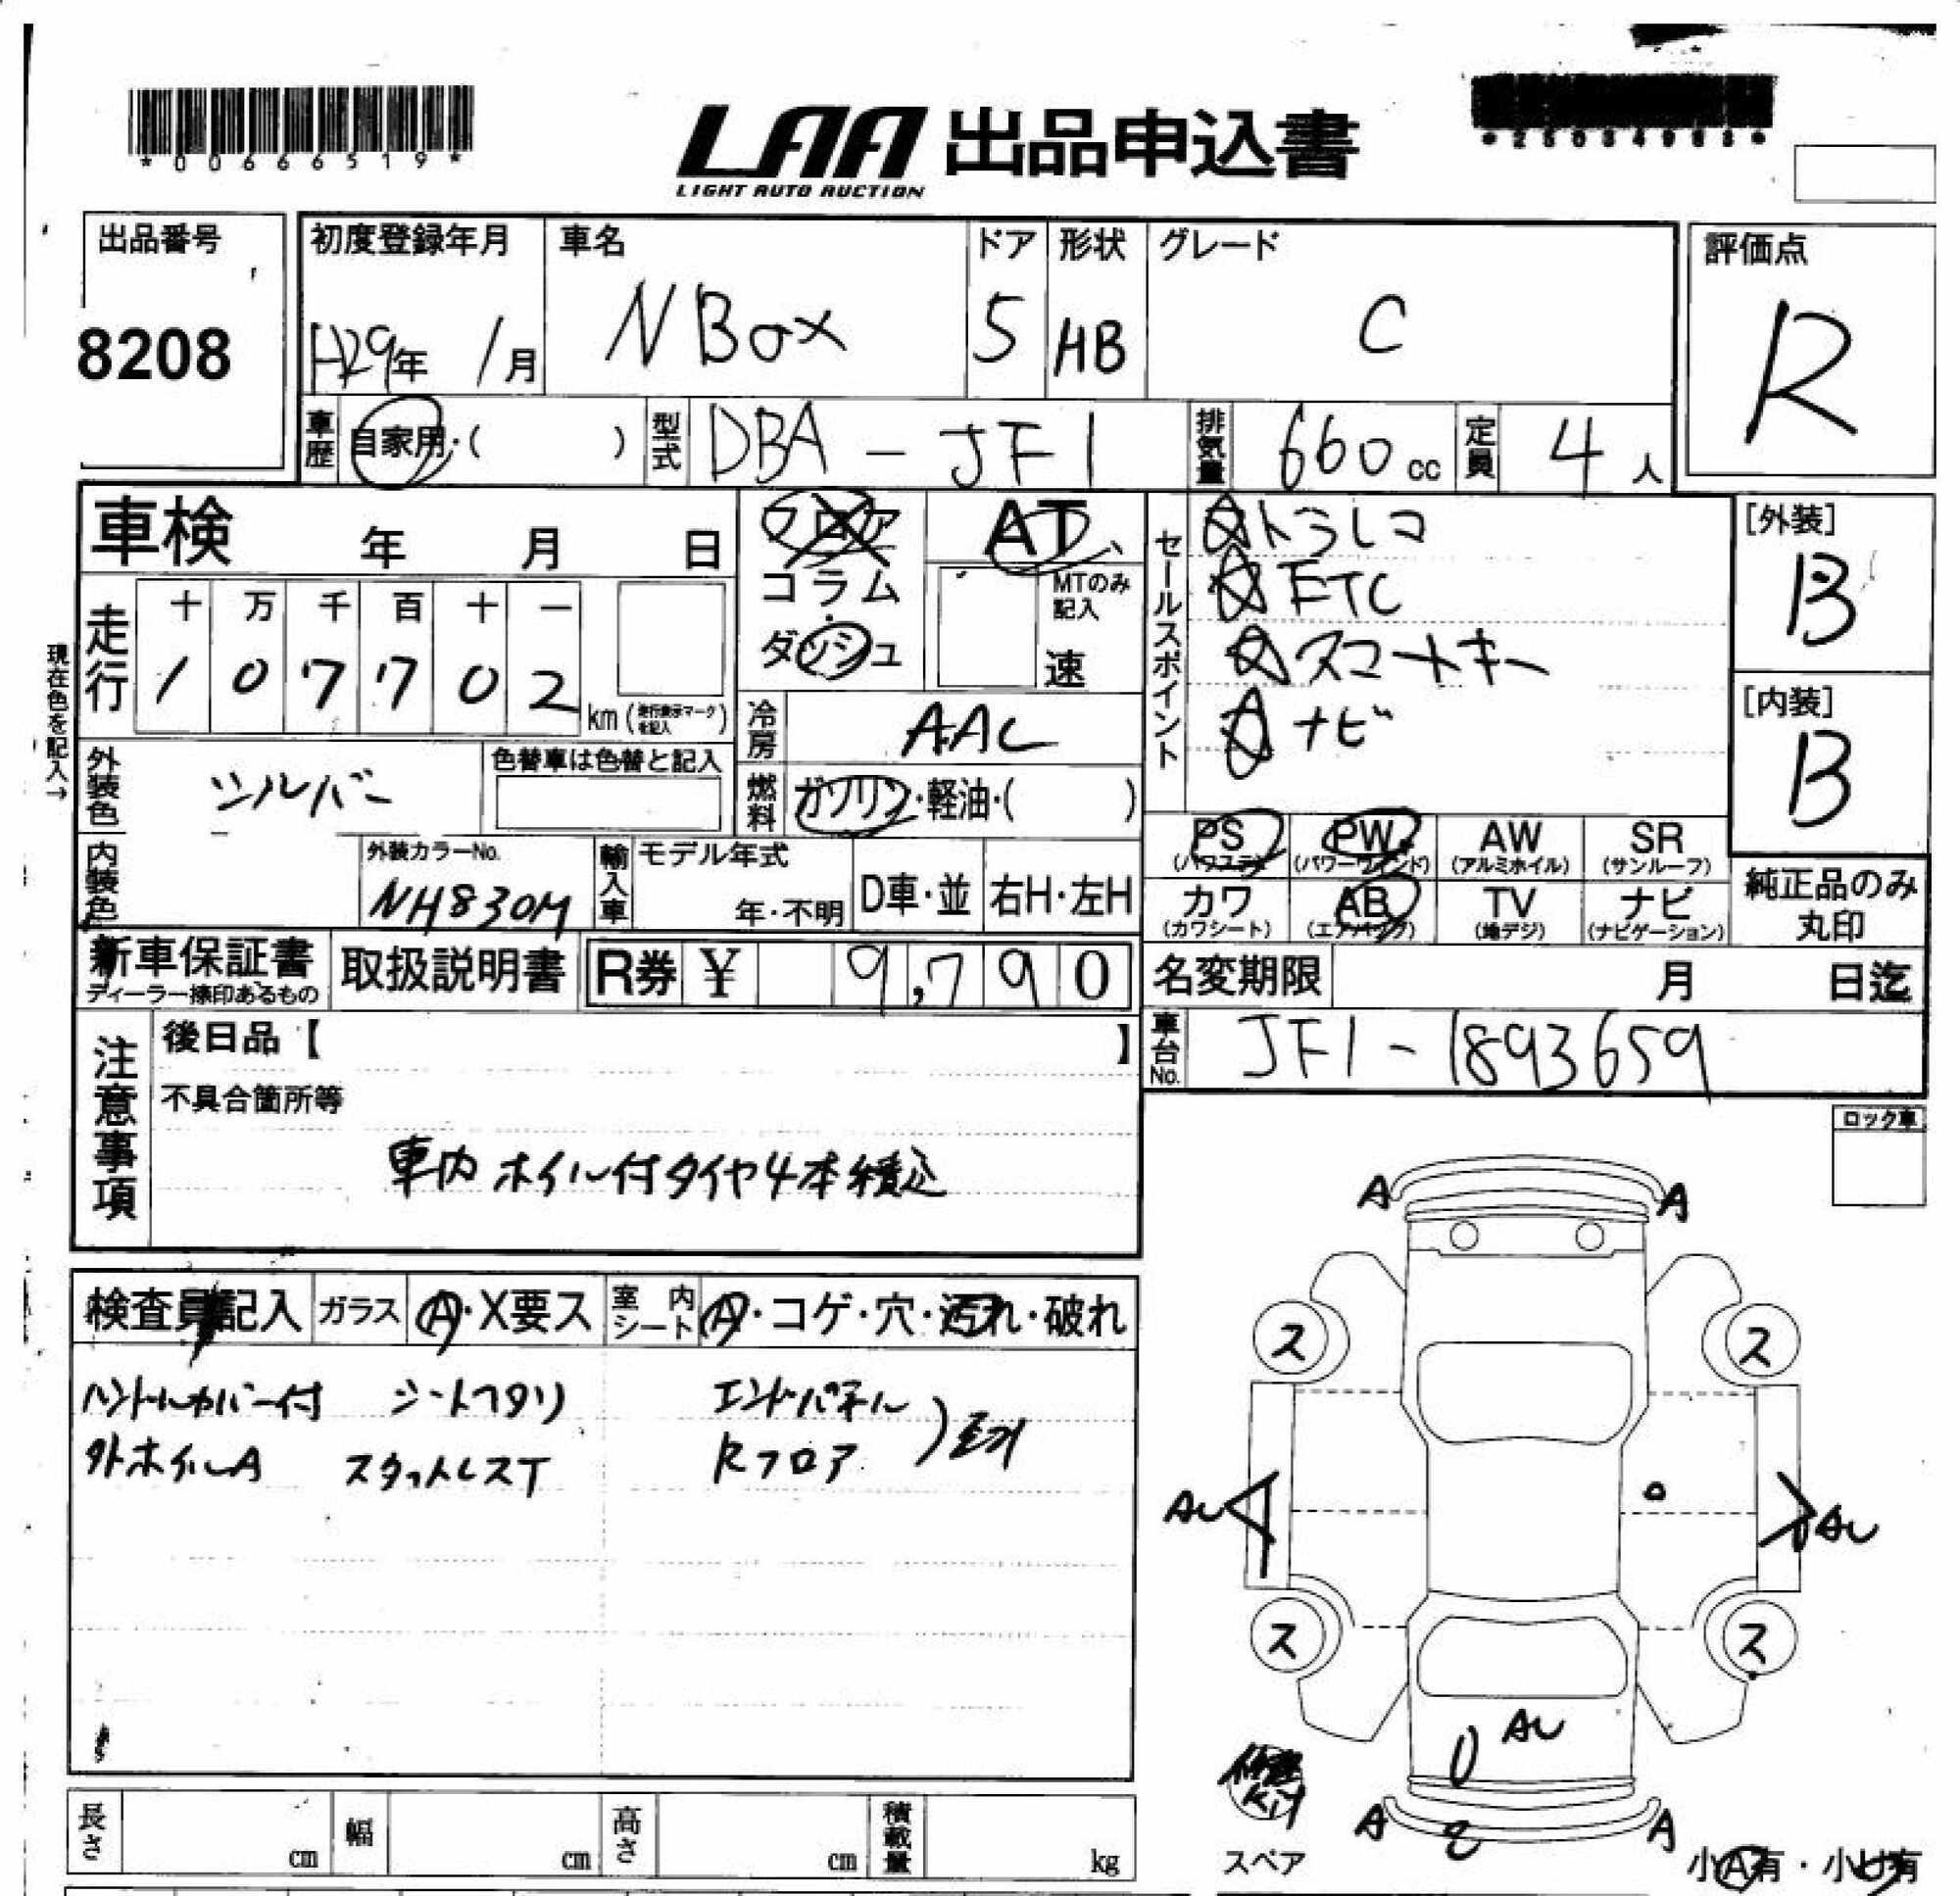 *00666519*
LAA 出品申込書
LIGHT AUTO AUCTION
出品番号
8208
初度登録年月
H29年 1月
車名
N Box
ドア
5
形状
HB
グレード
C
評価点
R
車歴
自家用・( )
型式
DBA - JF1
排気量
660cc
定員
4人
車検 年 月 日
フロア
コラム
ダッシュ
AT
MTのみ記入
速
セールスポイント
ドラレコ
ETC
スマートキー
ナビ
[外装]
B
[内装]
B
現在色を記入→
走行
十 万 千 百 十 一
1 0 7 7 0 2
km (走行表示マークを記入)
冷房
AAC
外装色
シルバー
色替車は色替と記入
燃料
ガソリン・軽油・( )
PS (パワステ)
PW (パワーウィンド)
AW (アルミホイル)
SR (サンルーフ)
カワ (カワシート)
AB (エアバッグ)
TV (地デジ)
ナビ (ナビゲーション)
純正品のみ
丸印
内装色
外装カラーNo.
NH830M
輸入車
モデル年式
年・不明
D車・並
右H・左H
新車保証書
ディーラー捺印あるもの
取扱説明書
R券 ¥ 9,790
名変期限 月 日迄
車台No.
JF1-1893659
注意事項
後日品【 】
不具合箇所等
車内 ホイル付タイヤ4本積込
ロック車
検査員記入
ガラス
A・X要ス
室内シート
A・コゲ・穴・汚れ・破れ
ハンドルカバー付 シートヘタリ エンドパネル
外ホイルA スタットレスT Rフロア
A A
ス ス
AU AU
ス ス
AU
U
A A
修理
Kit
スペア
小A有・小U有
長さ cm
幅 cm
高さ cm
積載量 kg